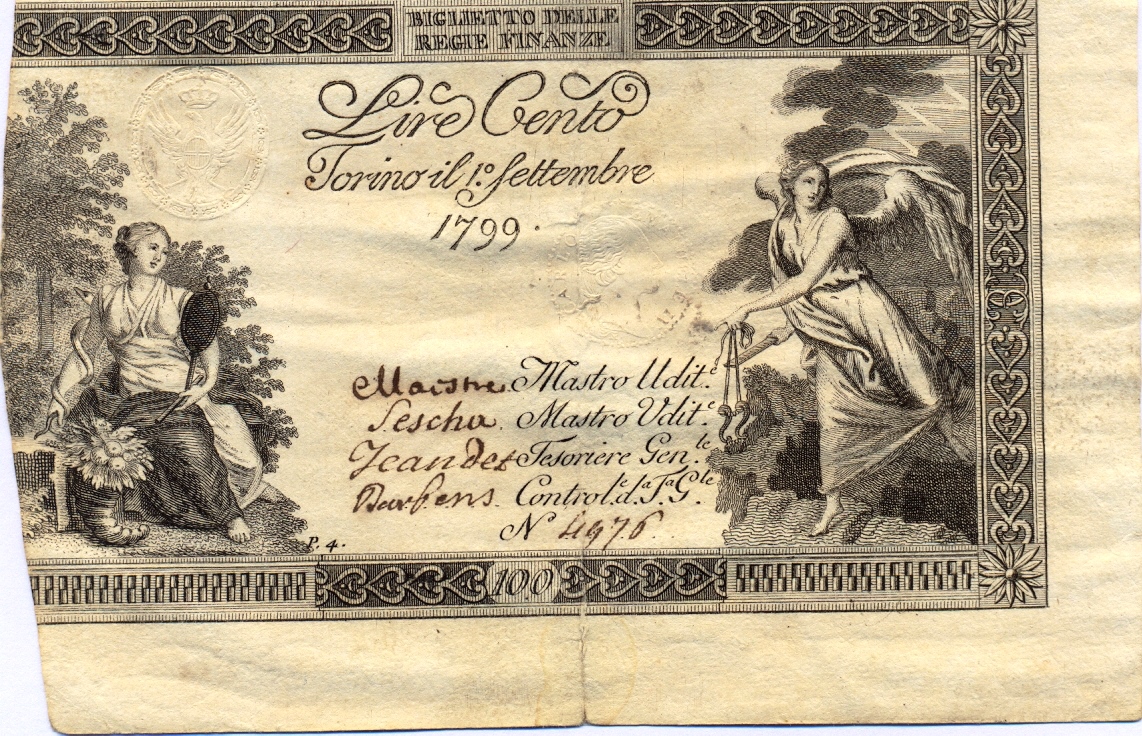 BIGLIETTO DELLE
REGIE FINANZE
Lire Cento
Torino il 1.º Settembre
1799.
Mastro Udit.e
Mastro Vdit.e
Jeandet Tesoriere Gen.le
Control.e d.a T.a G.le
N 4976.
P. 4.
100